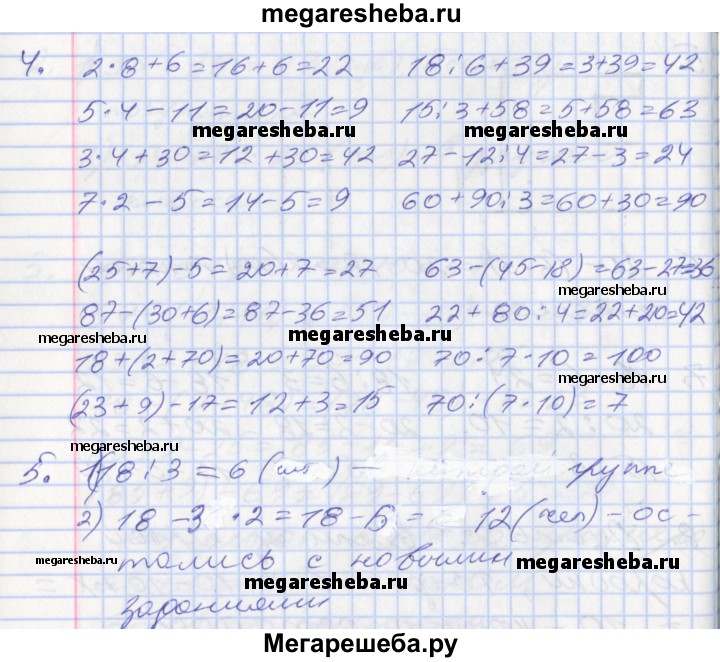 megaresheba.ru
4. 2·8+6=16+6=22 18:6+39=3+39=42
5·4-11=20-11=9 15:3+58=5+58=63
megaresheba.ru megaresheba.ru
3·4+30=12+30=42 27-12:4=27-3=24
7·2-5=14-5=9 60+90:3=60+30=90
(25+7)-5=20+7=27 63-(45-18)=63-27=36
megaresheba.ru
87-(30+6)=87-36=51 22+80:4=22+20=42
megaresheba.ru megaresheba.ru
18+(2+70)=20+70=90 70:7·10=100
megaresheba.ru
(23+9)-17=12+3=15 70:(7·10)=7
megaresheba.ru
5. 1) 18:3=6 ( ) - группе
2) 18-3·2=18-6= 12 (чел) - ос-
тались с новыми
megaresheba.ru megaresheba.ru
megaresheba.ru
заданиями
Мегарешеба.ру